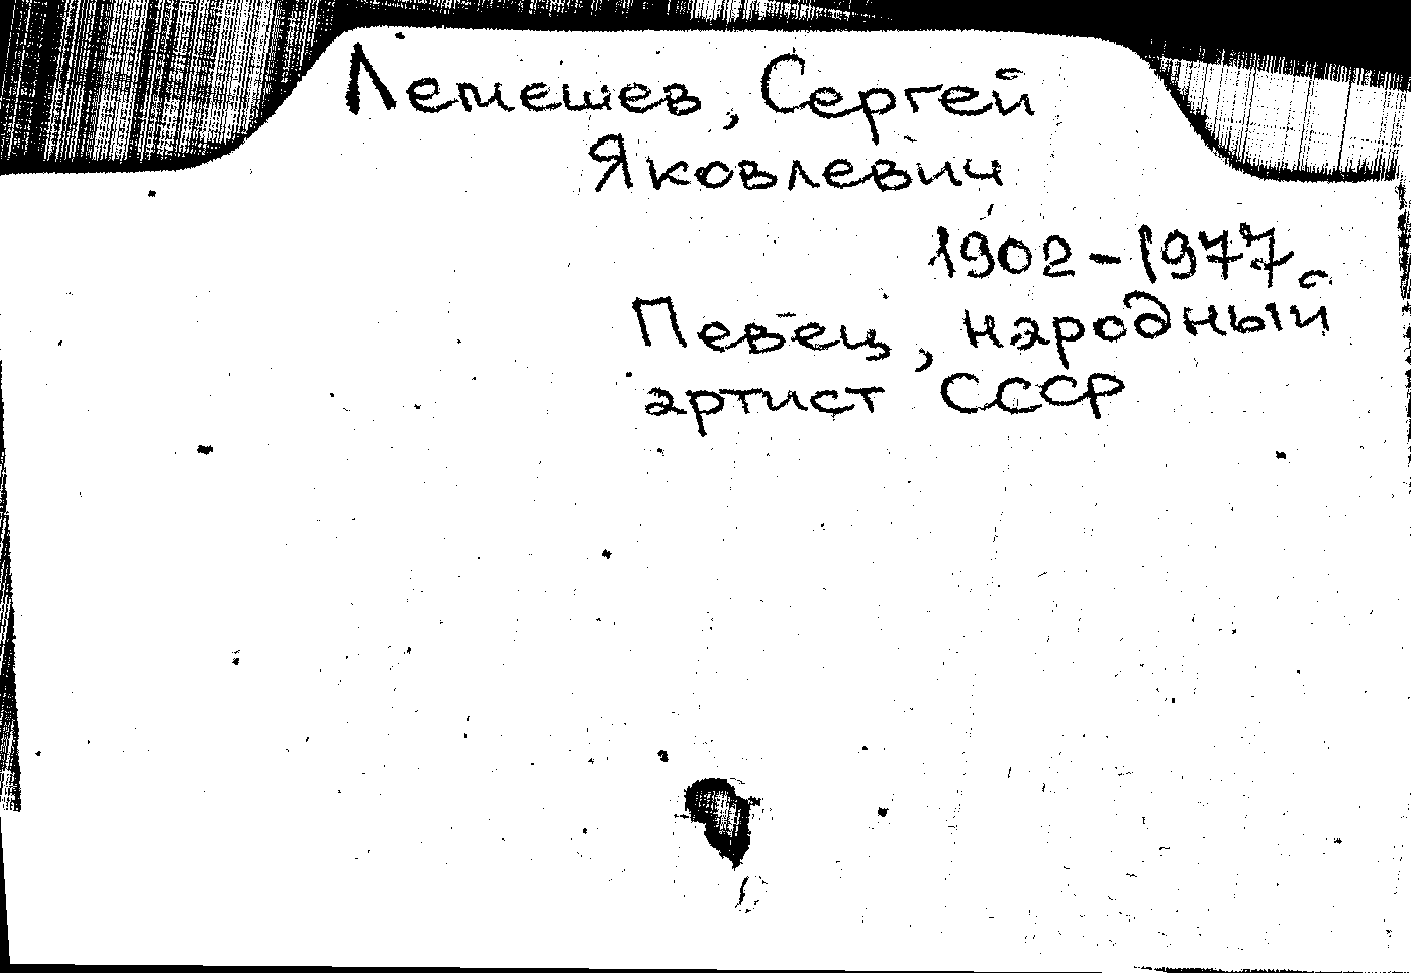 Лемешев, Сергей
Яковлевич
1902-1977.
Певец, народный
артист СССР